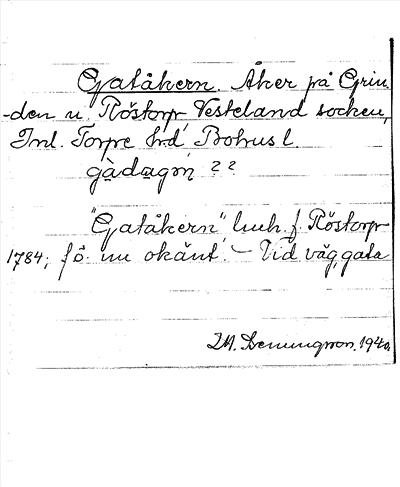 Gatåkern. Åker på Grin-
-den u. Röstorp, Vesteland socken,
Inl. Torpe hrd Bohus l.
gàdagọn ? ?
"Gatåkern" luh. f. Röstorp
1784; f ö. nu okänt. – Vid väg, gata
1940.